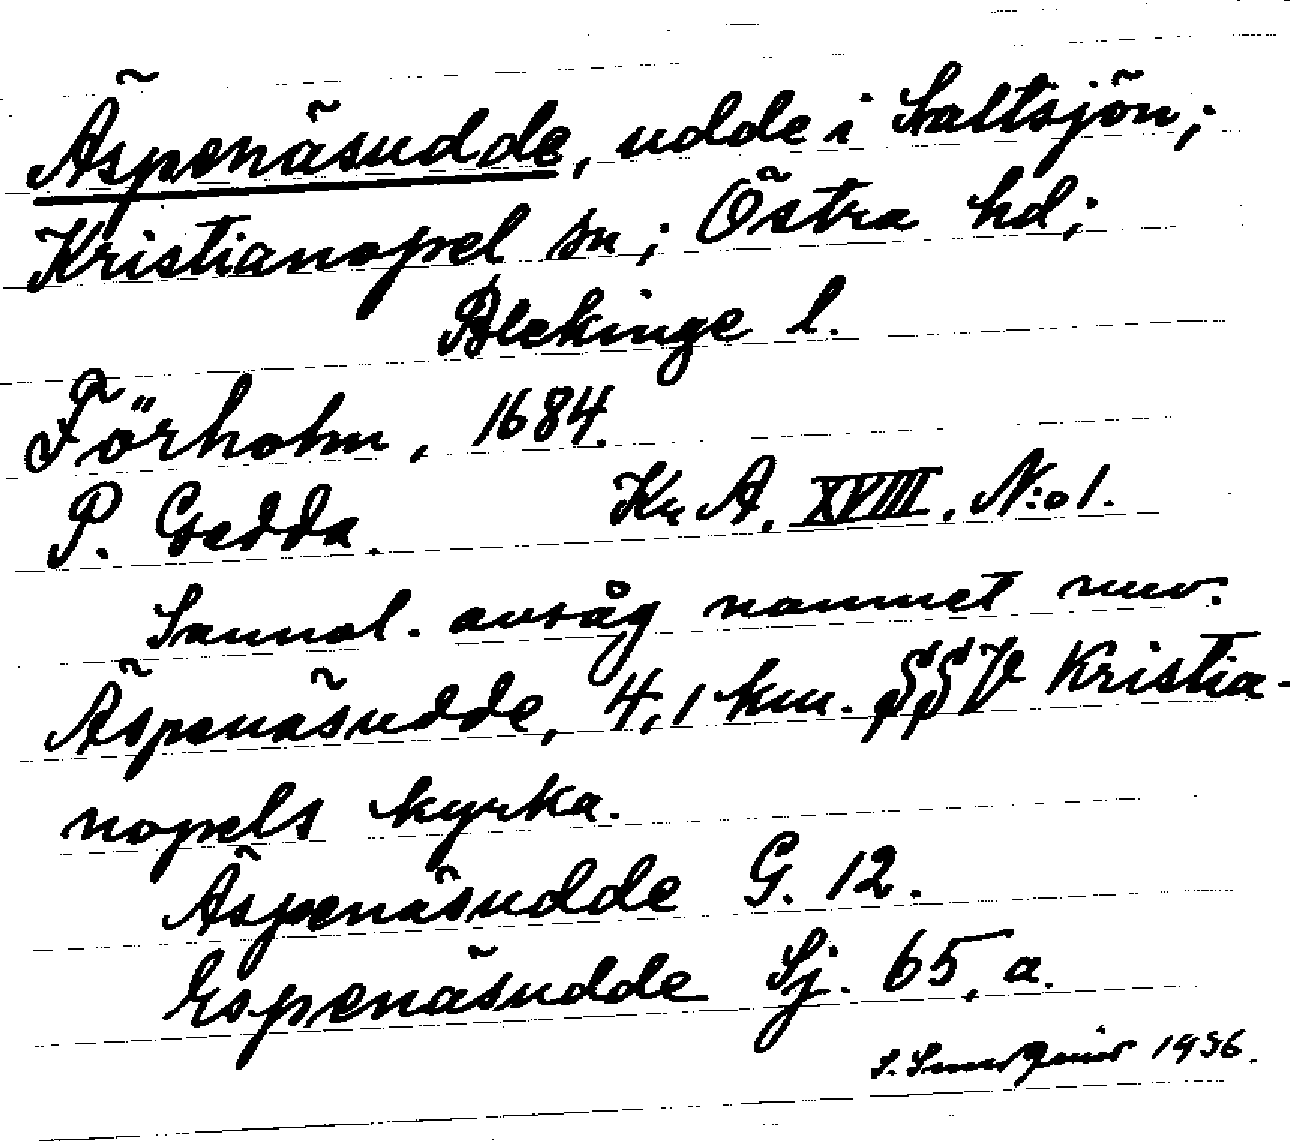 Äspenäsudde, udde i Saltsjön;
Kristianopel sn; Östra hd;
Blekinge l.
Förholm, 1684.
P. Gedda. Kr A. XVIII. N:o 1.
Sannol. avsåg namnet nuv.
Äspenäsudde, 4,1 km. SSV Kristia-
nopels kyrka.
Äspenäsudde G. 12.
Espenäsudde Sj. 65, a.
S. 1936.